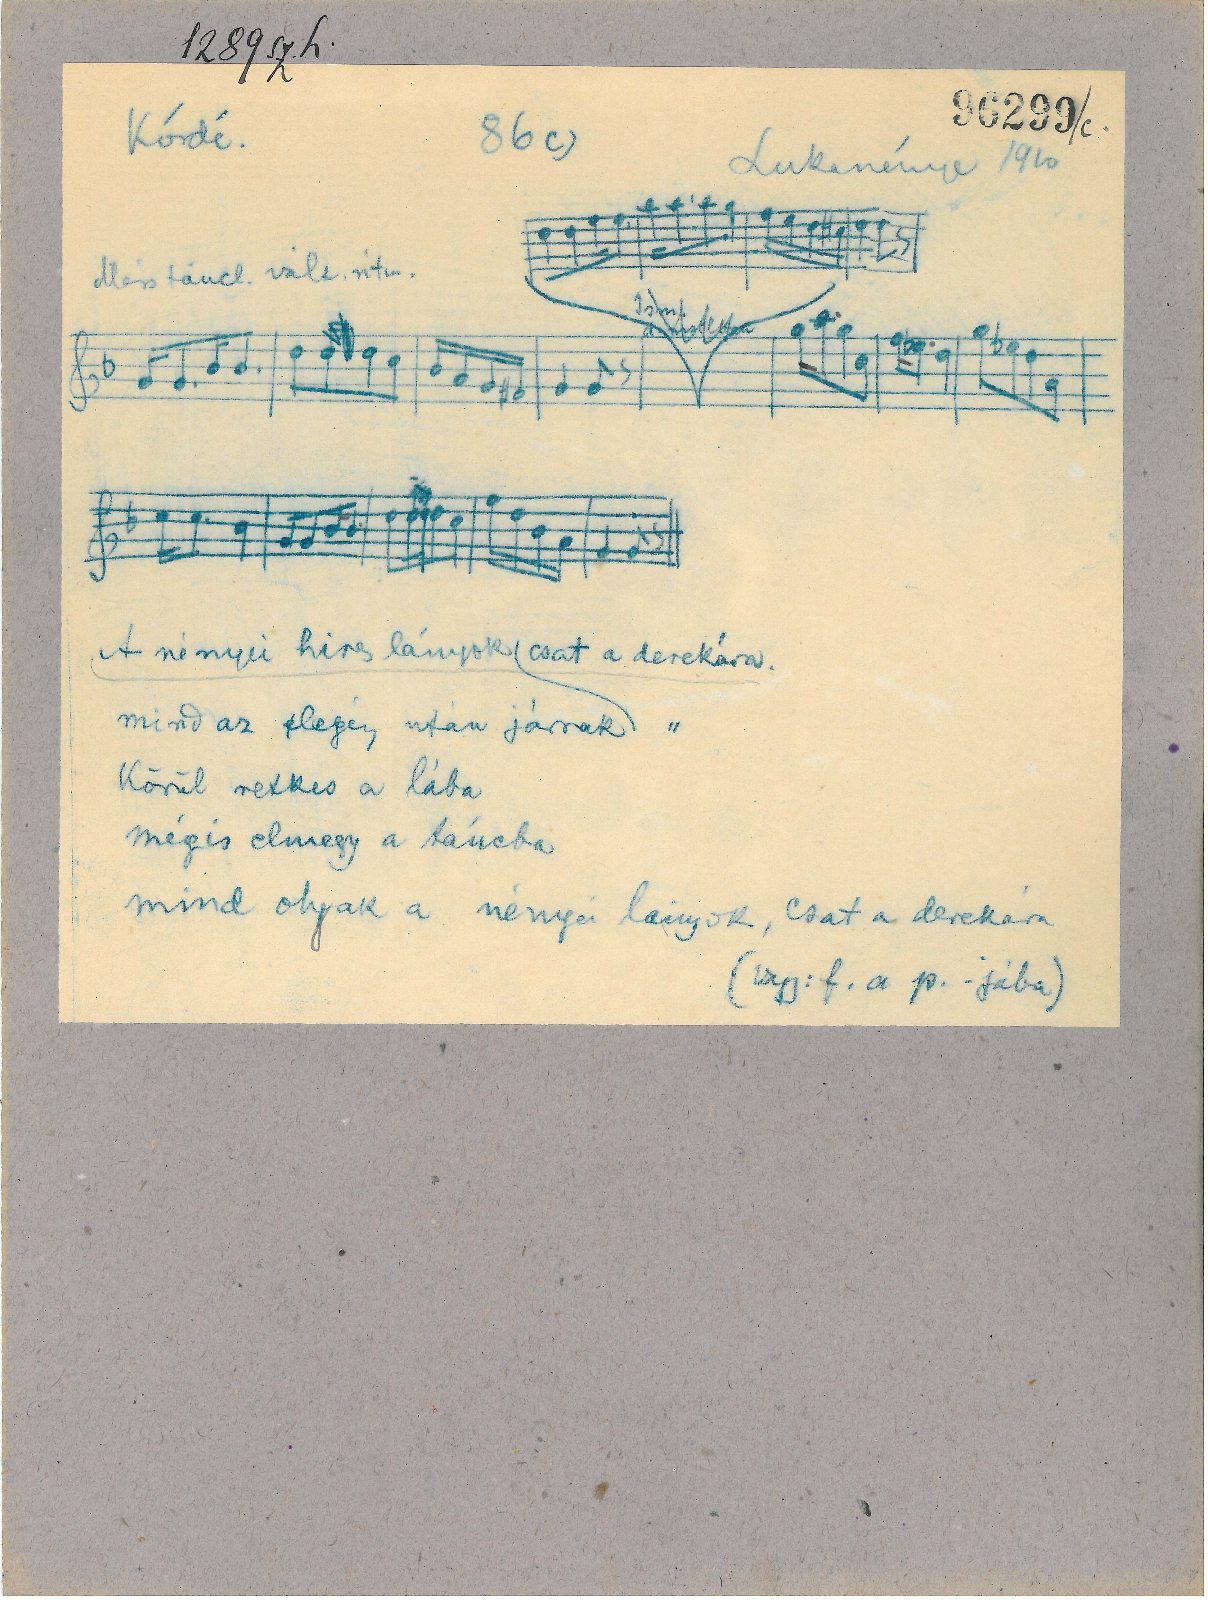 1289 sz. h.
96299/c.
Kórdé.
86 c)
Lukanénye 1910
A nényei hires lányok csat a derekára.
mind az legény után járnak "
Körül retkes a lába
mégis elmegy a táncba
mind olyak a nényei lányok, csat a derekára
(vagy: f. a p. -jába)